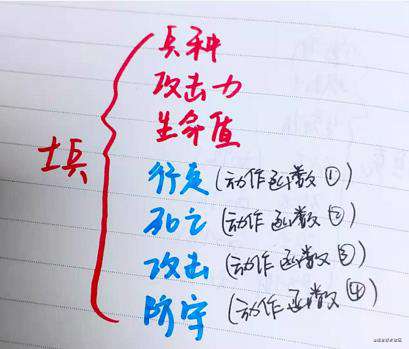 士兵
兵种
攻击力
生命值
行走(动作函数①)
死亡(动作函数②)
攻击(动作函数③)
防守(动作函数④)